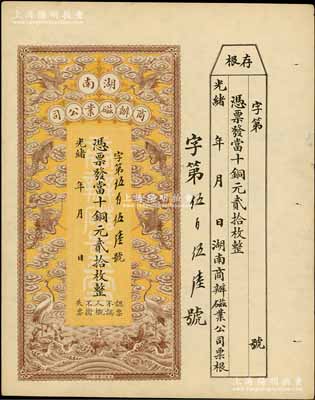 上海陽明拍賣
存根
字第 號
憑票發當十銅元貳拾枚整
光緒 年 月 日湖南商辦磁業公司票根
字第伍百伍陸號
湖南
商辦磁業公司
字第伍百伍陸號
憑票發當十銅元貳拾枚整
光緒 年 月 日
認票
不認
人概
不掛
失票
上海陽明拍賣